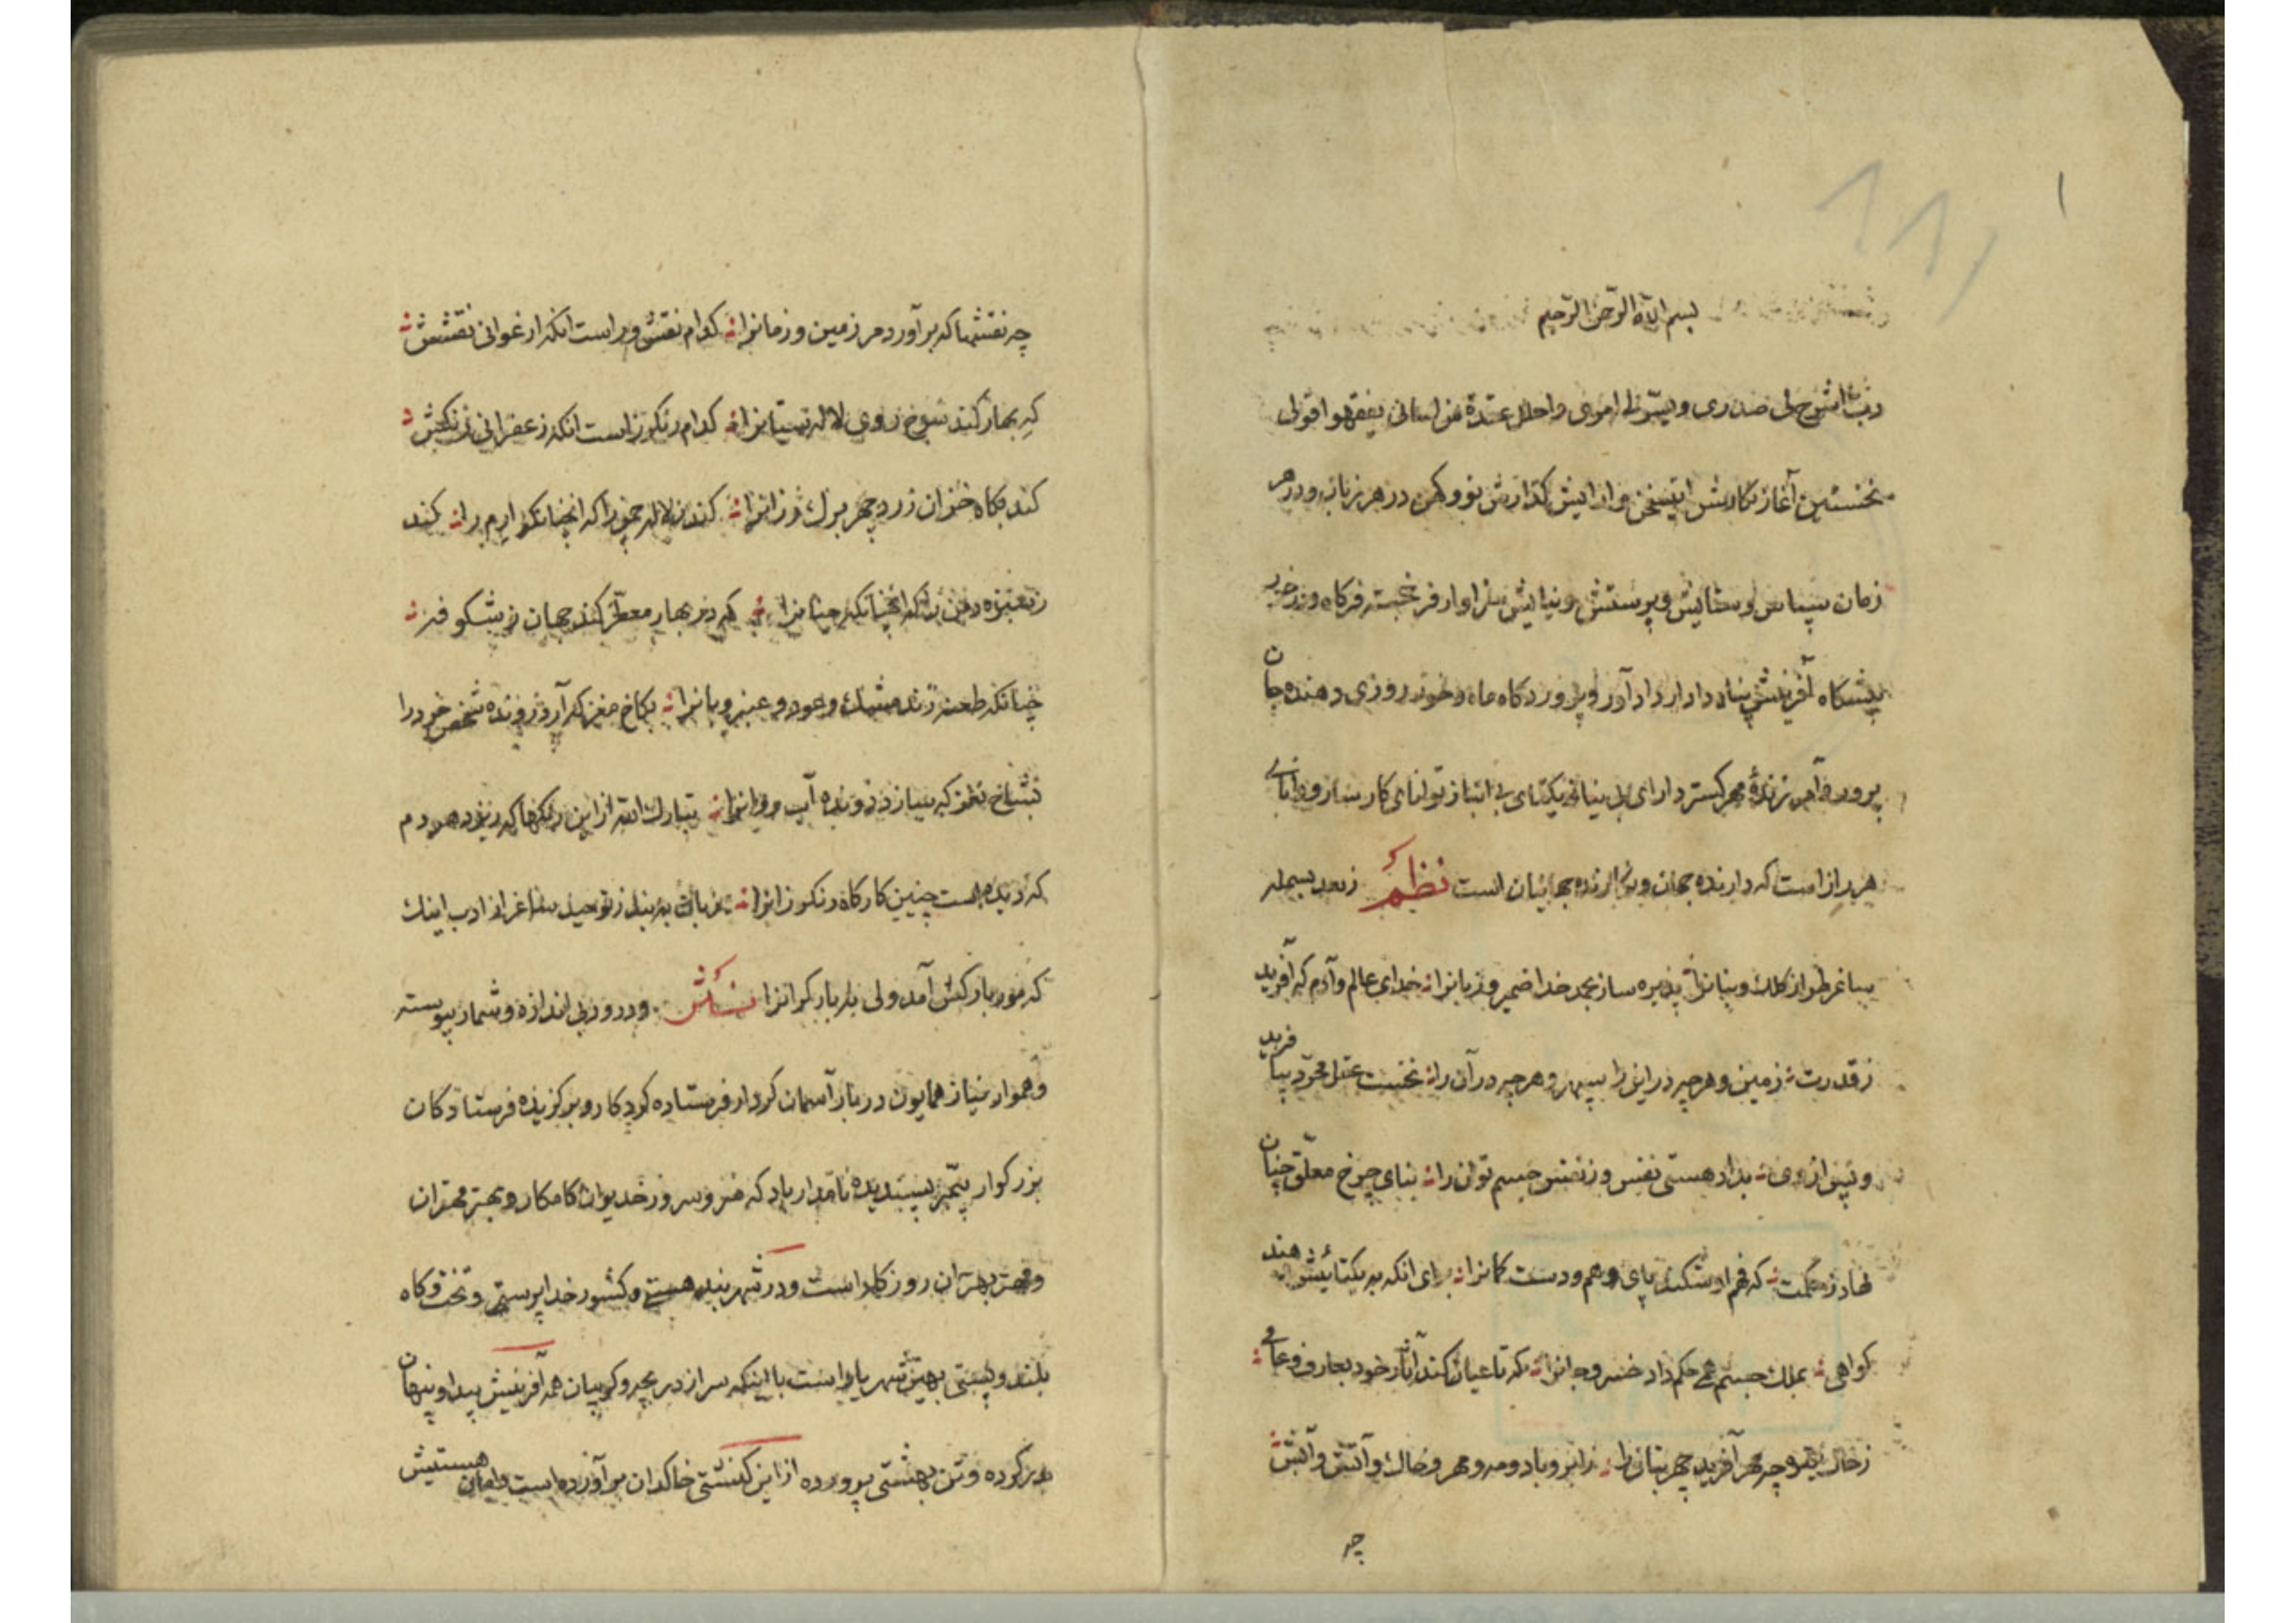 بسم الله الرحمن الرحیم
رب اشرح لی صدری و یسر لی امری واحلل عقدة من لسانی یفقهوا قولی
نخستین آغاز نکارش سخن و کذارش نو و کهن در هر زبان و در هر
زمان سپاس و ستایش و پرستش و نیایش سزاوار فرخجسته فرکاه و
پیشکاه آفرینش پناه دادار داد آور و پرورد کاه ماه و خور روزی دهنده جان
پرور و آمرزندهٔ مهر کستر دارای بی نیاز یکتای بی انباز توانای کار ساز و دانای
است که دارنده جهان و جهانیان است نظم ز بعد بسمله
ساغر طراز کلک و بنانرا پذیره ساز بحمد خدا ضمیر و زبانرا خدای عالم و آدم که آفرید
ز قدرت زمین و هر چه در این را سپهر و هر چه در آن را نخست عقل مجرد بیافرید
و پس از وی بداد هستی نفس و ز نفس جسم توان را بنای چرخ معلق چنان
نهاد ز حکمت که فهم او شکند پای وهم و دست کمانرا برای انکه به یکتائیش دهند
کواهی بملک جسم همی حکم داد خسرو جانرا که تا عیان کند آثار خود بعارف و عامی
ز خاک چه مهر آفرید چهر بتانرا ز ابر و باد و مه و مهر و خاک و آتش و آبش
چه
چه نقشها که برآورد مر زمین و زمانرا کدام نقش و راست انکه ارغوانی نقشش
که بهار کند سرخ روی لاله ستانرا کدام رنکرز است انکه زعفرانی رنکش
کند بکاه خزان زرد چهر برک رزانرا کند ز لاله چمن را که انچنانکه ارم را کند
ز سبزه دمن را که انچنانکه جنانرا که در بهار معطر کند جهان ز شکوفه
چنانکه طعنه زند مشک و عود و عنبر و بانرا بکاخ مغز که آرد فروزنده شخص خرد را
بشاخ نغز که سازد رونده آب روانرا تبارک الله از این رنکها که ریزد هر دم
که دیده است چنین کارکاه رنکرزانرا زبان به بند ز توحید ساغر از ادب اینک
که مور بارکش آمد ولی نه بار کرانرا نثر و درود بی اندازه و شمار پیوسته
و هموار نیاز همایون دربار آسمان کردار فرستاده کردکار و برکزیده فرستادکان
بزرکوار پیمبر پسندیده نامدار باد که خسرو سرور خدیوان کامکار و بهتر مهتران
و مهتر بهتران روزکار است و در شهر بند هستی و کشور خدا پرستی و تختکاه
بلندی و پستی بهین شهریار است با اینکه سر از دریچه و کریبان همه آفرینش پیدا و پنهان
بدر کرده و تن بهشتی پرورده از این کنشتی خاکدان برآورده است هستیش